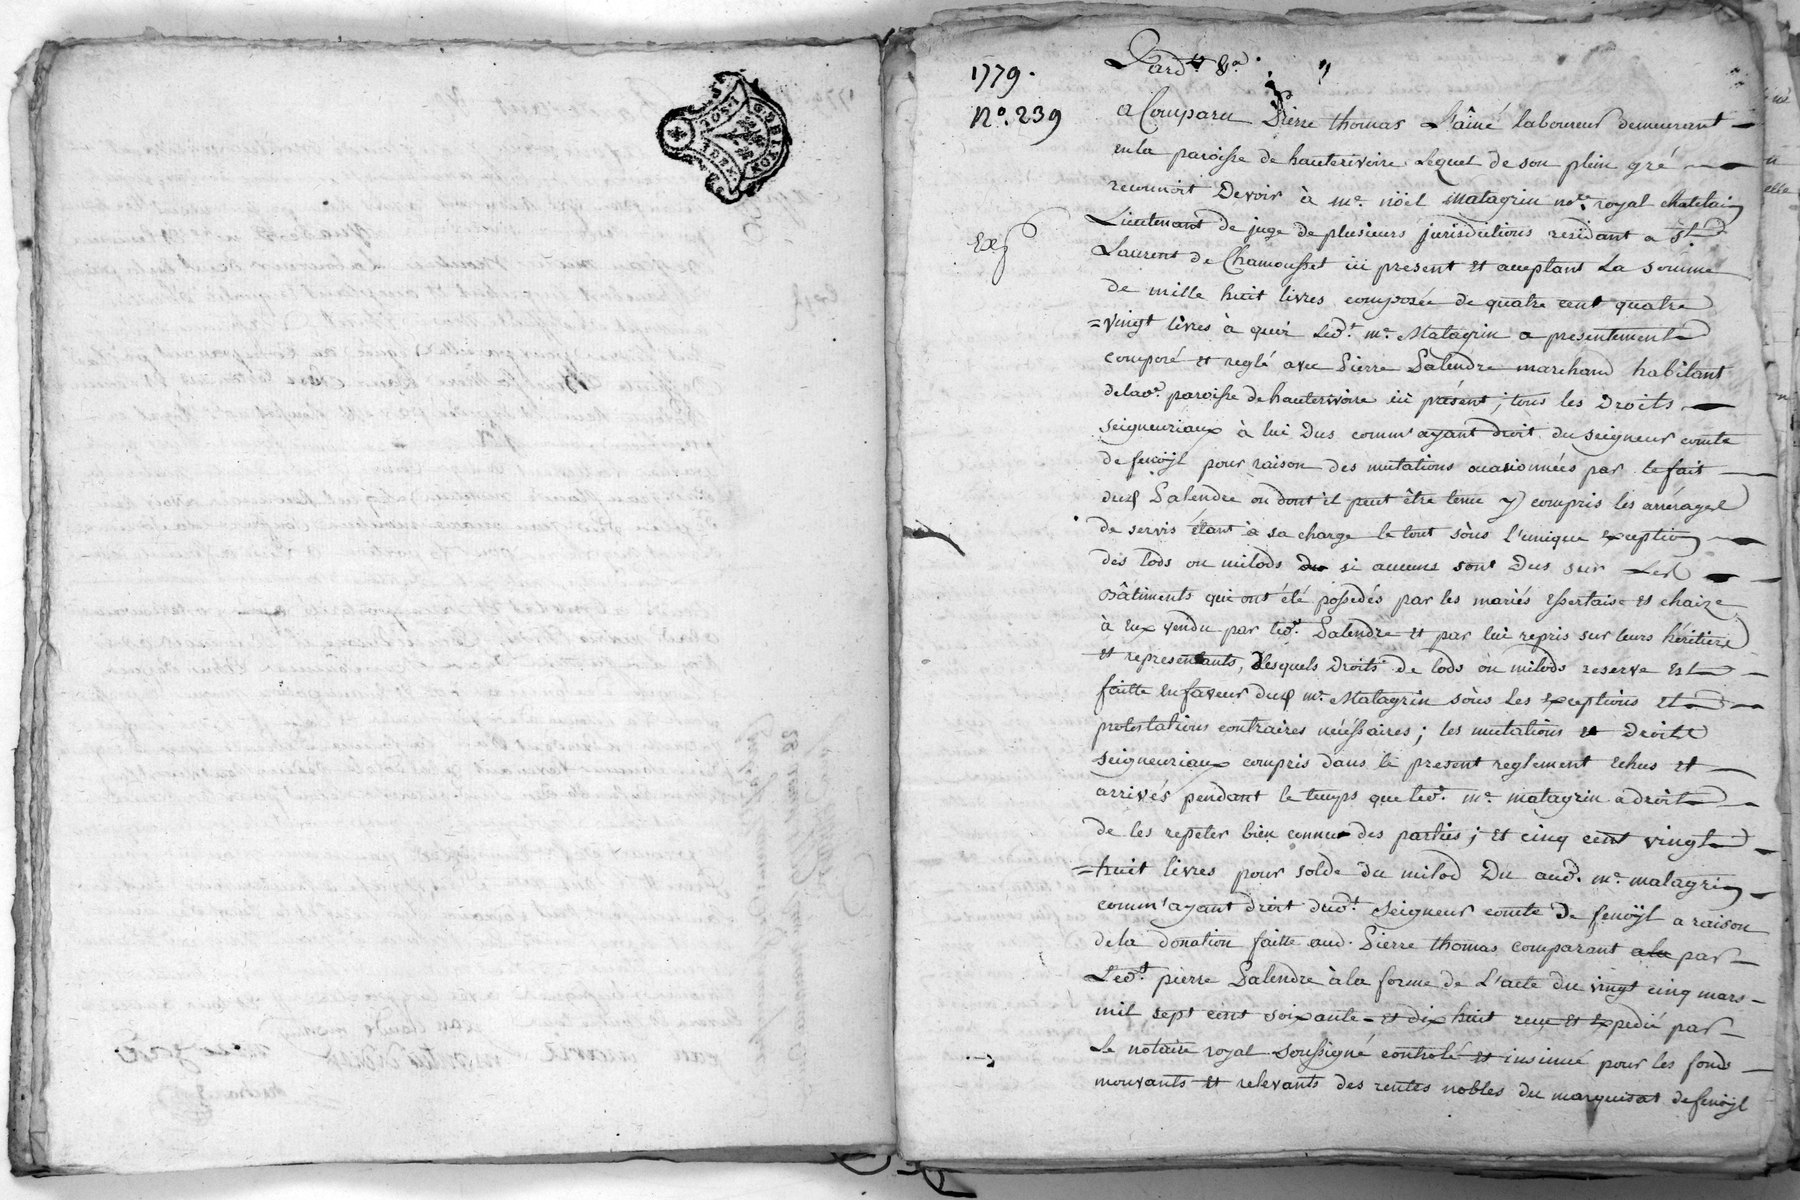 1779.
N.° 239
Pard.t &a.
a Comparu Pierre thomas L'aîné laboureur demeurant
en la paroisse de hauterivoire Lequel de son plein gré
reconnoit Devoir à m.e nöel matagrin no.re royal chatelain
Exp
Lieutenant de juge de plusieurs jurisdictions residant a S.t
Laurent de Chamousset ici present et acceptant La somme
de mille huit livres composée de quatre cent quatre
=vingt livres à quoi led.t m.e Matagrin a presentement
composé et reglé avec Pierre Dalendre marchand habitant
de lad.e paroisse de hauterivoire ici présent; tous les Droits
seigneuriaux à lui Dus comm'ayant droit du seigneur comte
de fenoÿl pour raison des mutations occasionnées par le fait
dud Dalendre ou dont il peut être tenu y compris les arrérages
de servis étant à sa charge le tout sous l'unique exception
des lods ou milods si aucuns sont Dus sur Les
Bâtiments qui ont été possedés par les mariés Essertaise et chaize
à eux vendu par led.t Dalendre et par lui repris sur leurs héritiers
et representants, Desquels Droits de lods ou milods reserve est
faitte en faveur dud m.e Matagrin sous les exceptions et
protestations contraires nécéssaires; les mutations et Droits
seigneuriaux compris dans le present reglement echus et
arrivés pendant le temps que led.t m.e matagrin a droit
de les repeter bien connu des parties; et cinq cent vingt
=huit livres pour solde du milod Du aud. m.e matagrin
comm'ayant droit dud.t seigneur comte De fenoÿl a raison
de la donation faitte aud. Pierre thomas comparant par
Led.t pierre Dalendre à la forme de L'acte du vingt cinq mars
mil sept cent soixante et dix huit reçu et Expedié par
le notaire royal soussigné controlé et insinué pour les fonds
mouvants et relevants des rentes nobles du marquisat de fenoÿl